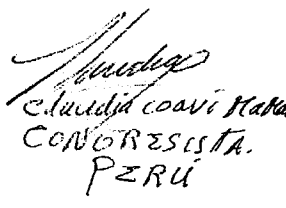 Claudia Coari Mama
CONGRESISTA.
PERÚ